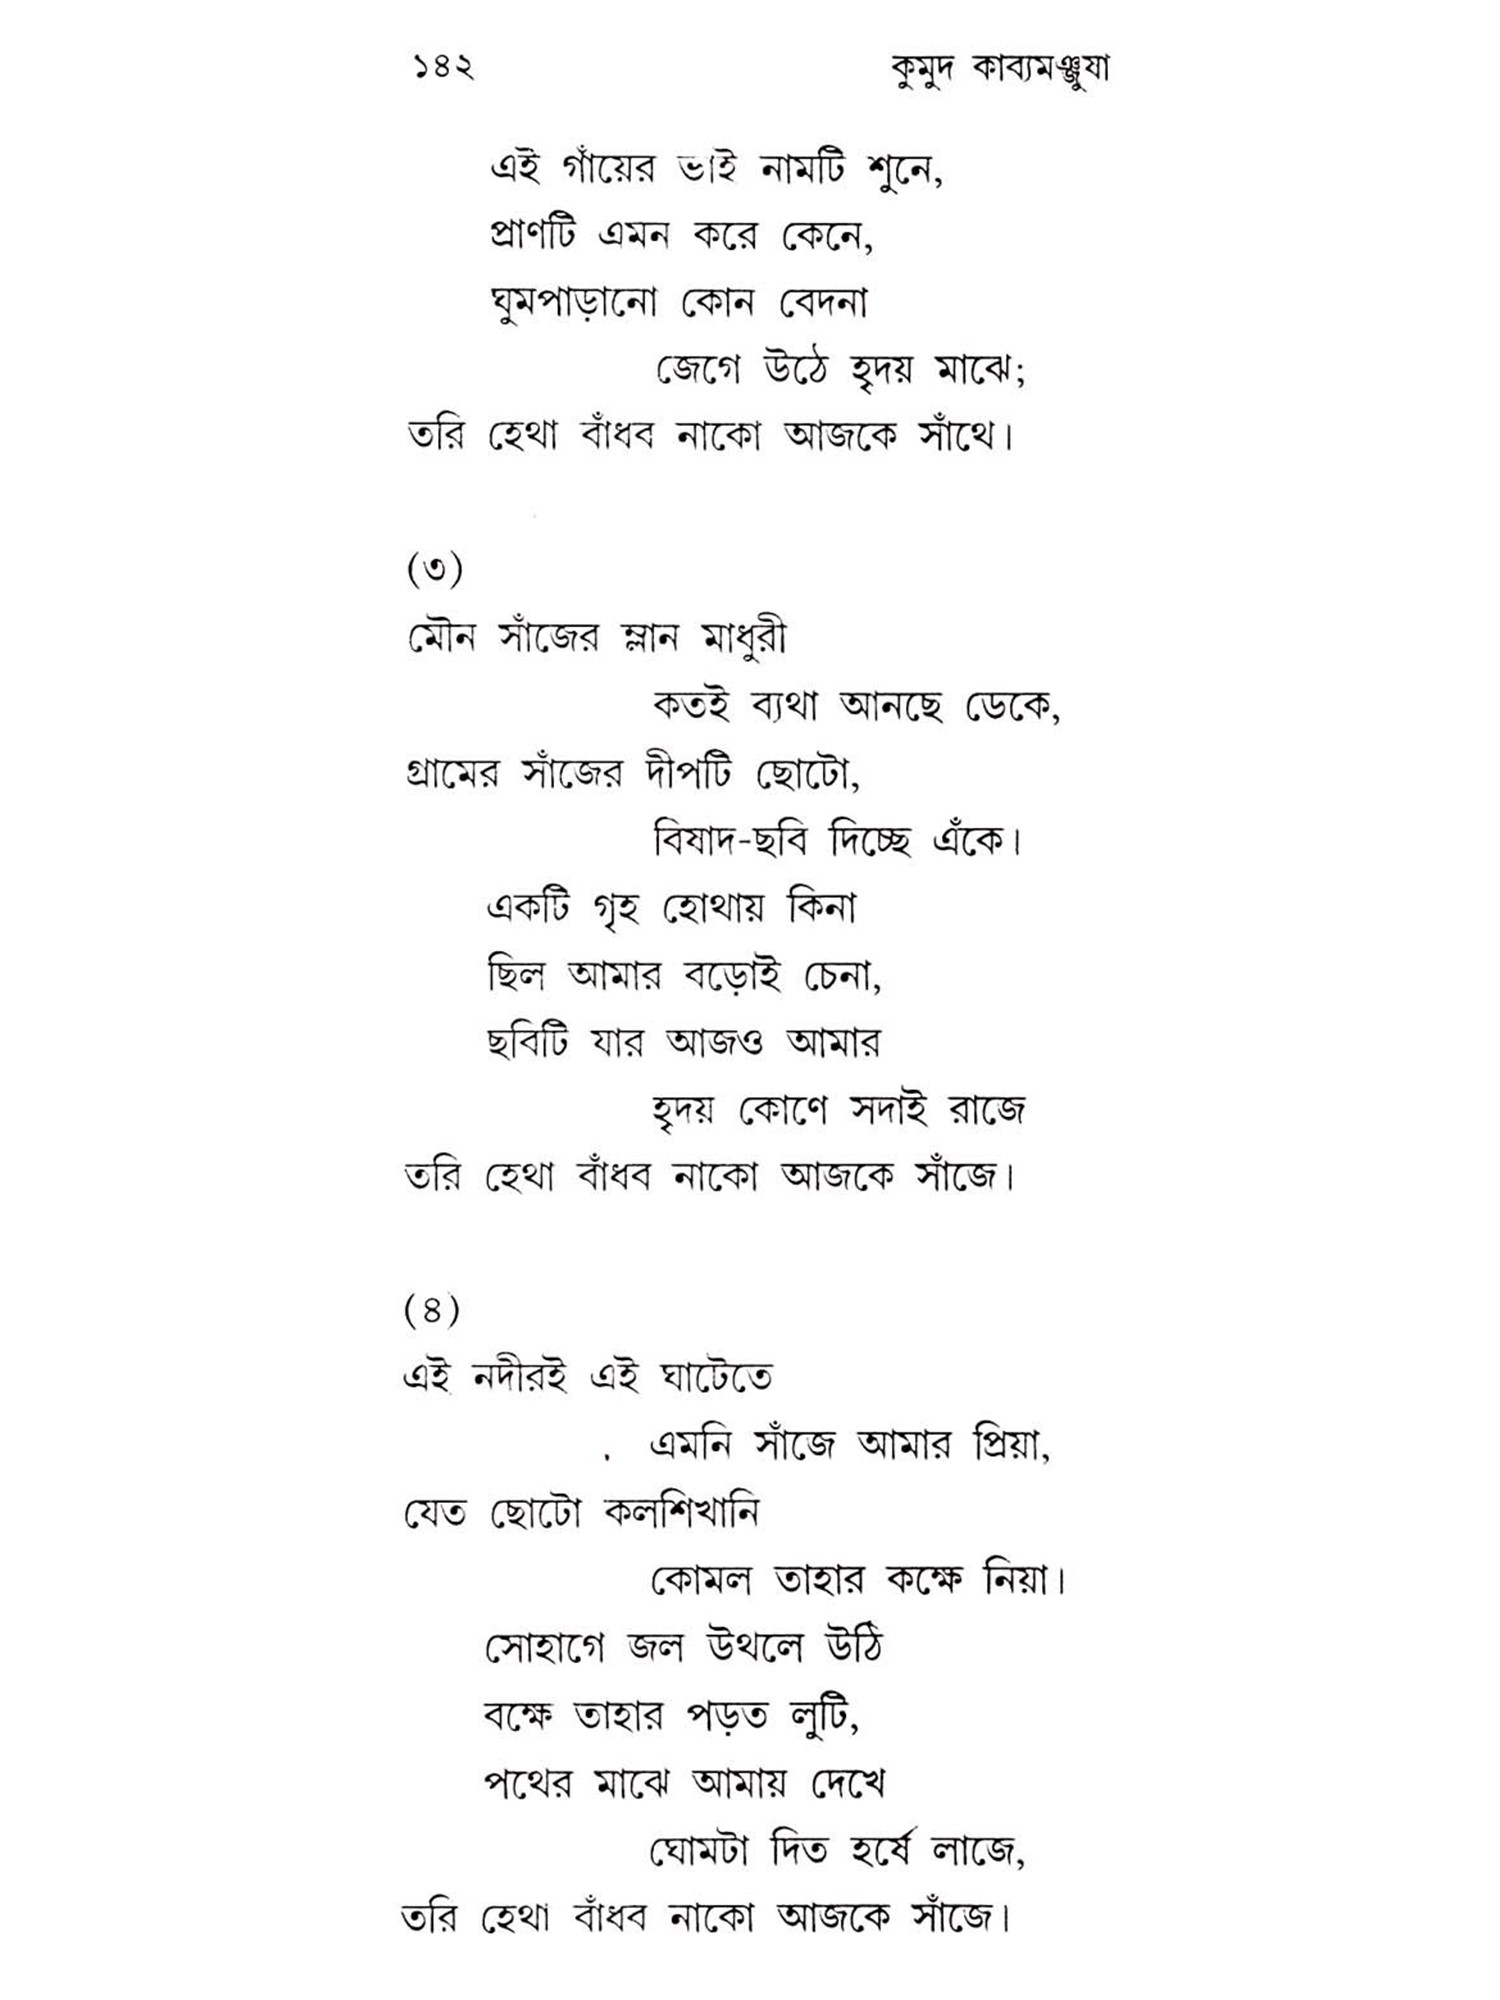 ১৪২ কুমুদ কাব্যমঞ্জুষা
এই গাঁয়ের ভাই নামটি শুনে,
প্রাণটি এমন করে কেনে,
ঘুমপাড়ানো কোন বেদনা
জেগে উঠে হৃদয় মাঝে;
তরি হেথা বাঁধব নাকো আজকে সাঁথে।
(৩)
মৌন সাঁজের ম্লান মাধুরী
কতই ব্যথা আনছে ডেকে,
গ্রামের সাঁজের দীপটি ছোটো,
বিষাদ-ছবি দিচ্ছে এঁকে।
একটি গৃহ হোথায় কিনা
ছিল আমার বড়োই চেনা,
ছবিটি যার আজও আমার
হৃদয় কোণে সদাই রাজে
তরি হেথা বাঁধব নাকো আজকে সাঁজে।
(৪)
এই নদীরই এই ঘাটেতে
এমনি সাঁজে আমার প্রিয়া,
যেত ছোটো কলশিখানি
কোমল তাহার কক্ষে নিয়া।
সোহাগে জল উথলে উঠি
বক্ষে তাহার পড়ত লুটি,
পথের মাঝে আমায় দেখে
ঘোমটা দিত হর্ষে লাজে,
তরি হেথা বাঁধব নাকো আজকে সাঁজে।